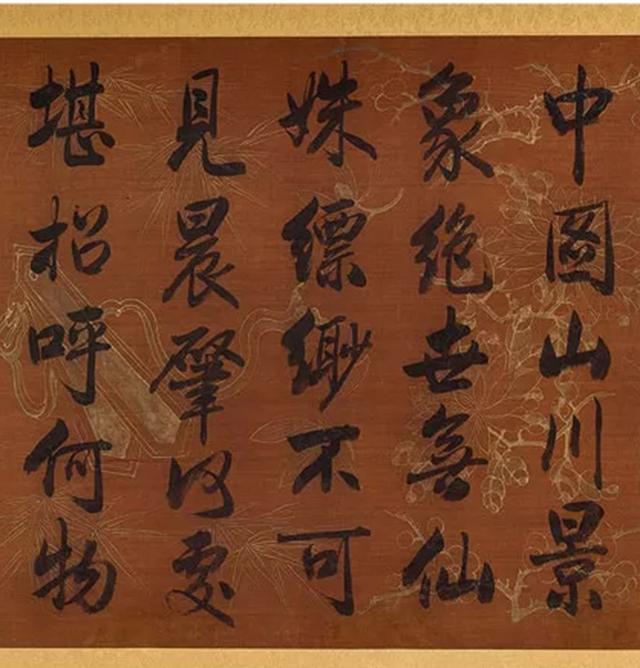 中圖山川景
象絶世無仙
姝縹緲不可
見晨肇何處
堪招呼何物